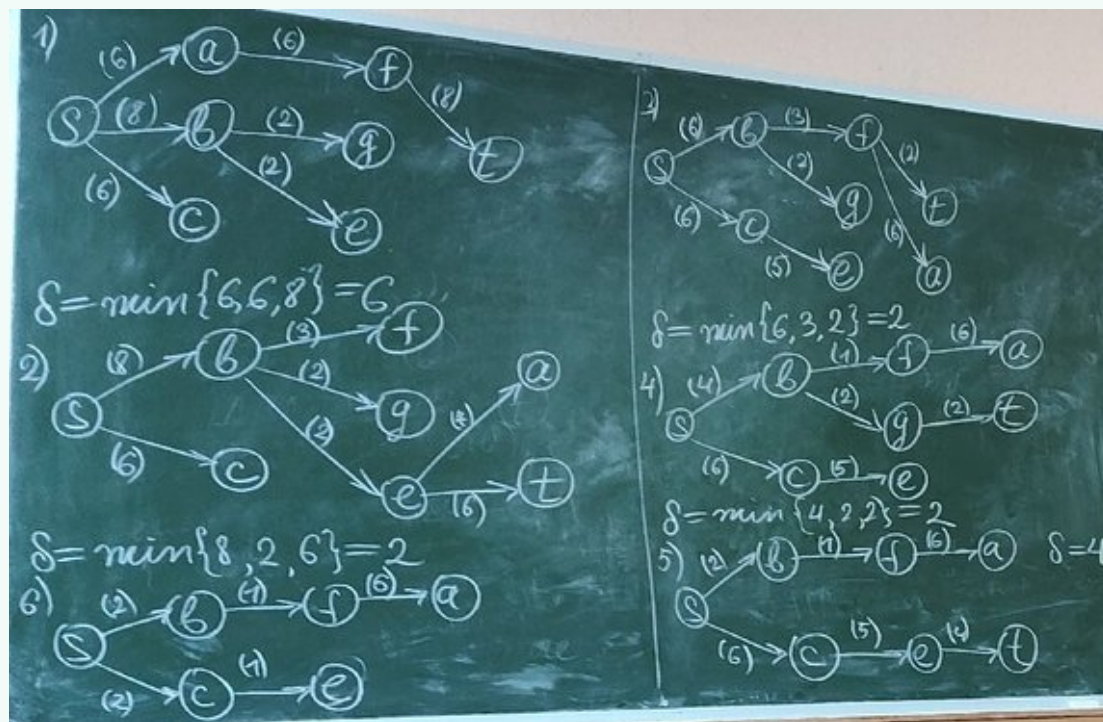 1)
(6) a (6) f
s (8) b (2) g (8) t
(6) c (2) e
δ = min{6,6,8} = 6
2)
(8) b (3) f
s (2) g a
(6) c (2) e (6) t
δ = min{8,2,6} = 2
6)
s (2) b (1) f (6) a
(2) c (1) e
(6) b (3) f (2) t
s (2) g (6) a
(6) c (5) e
δ = min{6,3,2} = 2
4)
s (4) b (1) f (6) a
(2) g (2) t
(6) c (5) e
δ = min{4,2,2} = 2
5)
s (2) b (1) f (6) a δ = 4
(6) c (5) e (4) t